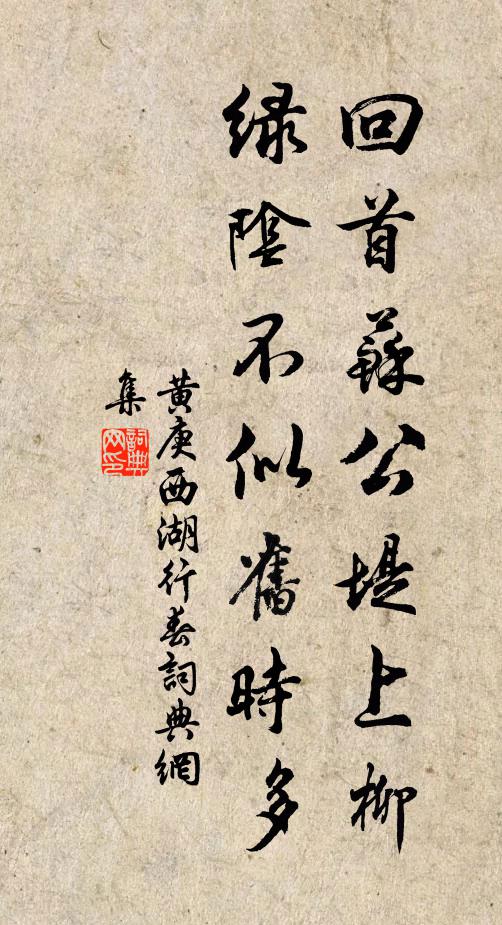 回首蘇公堤上柳
綠陰不似舊時多
黃庚西湖行春詞典網
集
詞典
网印